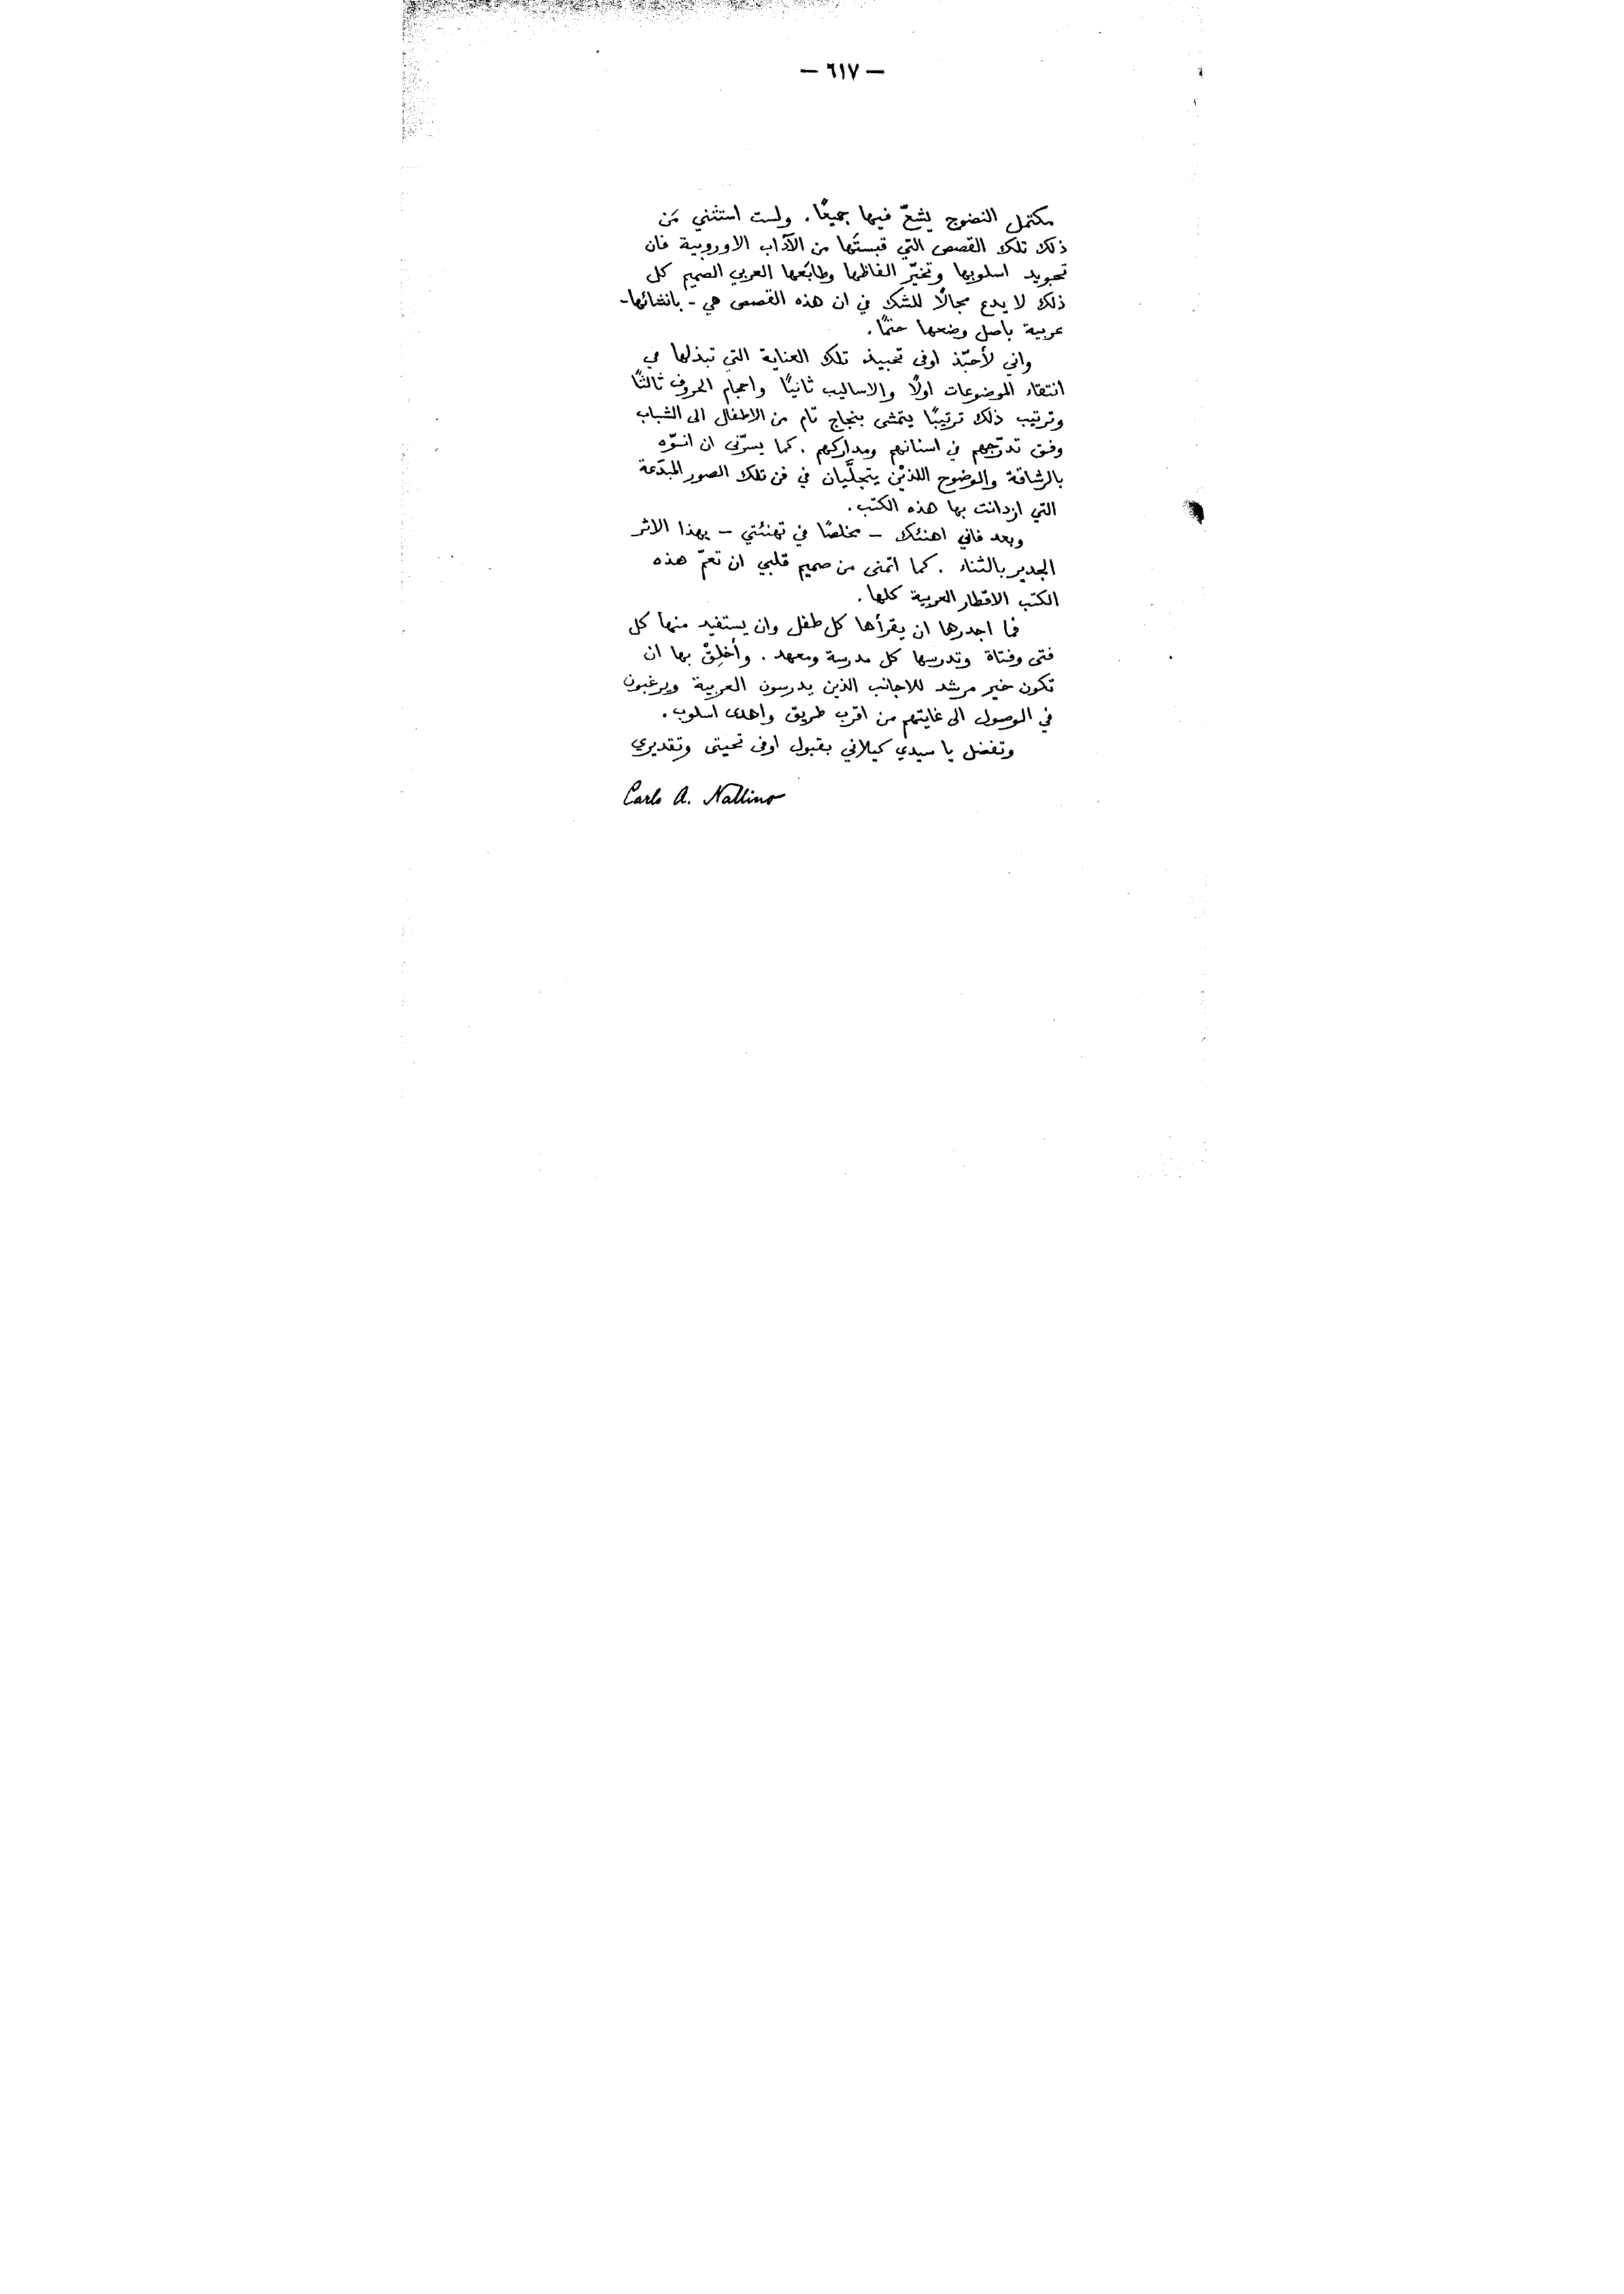 — ٦١٧ —
مكتمل النضوج يشعّ فيها جميعًا. ولست استثني من
ذلك تلك القصص التي قبستَها من الآداب الاوروبية فان
تجويد اسلوبها وتخيّر الفاظها وطابَعها العربي الصميم كل
ذلك لا يدع مجالًا للشك في ان هذه القصص هي - بانشائها -
عربية باصل وضعها حتمًا.
واني لأحبّذ اوفى تحبيذ تلك العناية التي تبذلها في
انتقاء الموضوعات اولًا والاساليب ثانيًا واحجام الحروف ثالثًا
وترتيب ذلك ترتيبًا يتمشى بنجاح تام من الاطفال الى الشباب
وفق تدرّجهم في اسنانهم ومداركهم. كما يسرّني ان انوّه
بالرشاقة والوضوح اللذيْن يتجلَّيان في فن تلك الصور المبدَعة
التي ازدانت بها هذه الكتب.
وبعد فاني اهنئك – مخلصًا في تهنئتي – بهذا الاثر
الجدير بالثناء. كما اتمنى من صميم قلبي ان تعمّ هذه
الكتب الاقطار العربية كلها.
فما اجدرها ان يقرأها كل طفل وان يستفيد منها كل
فتى وفتاة وتدرسها كل مدرسة ومعهد. وأخلِقْ بها ان
تكون خير مرشد للاجانب الذين يدرسون العربية ويرغبون
في الوصول الى غايتهم من اقرب طريق واهدى اسلوب.
وتفضل يا سيدي كيلاني بقبول اوفى تحيتى وتقديري
Carlo A. Nallino